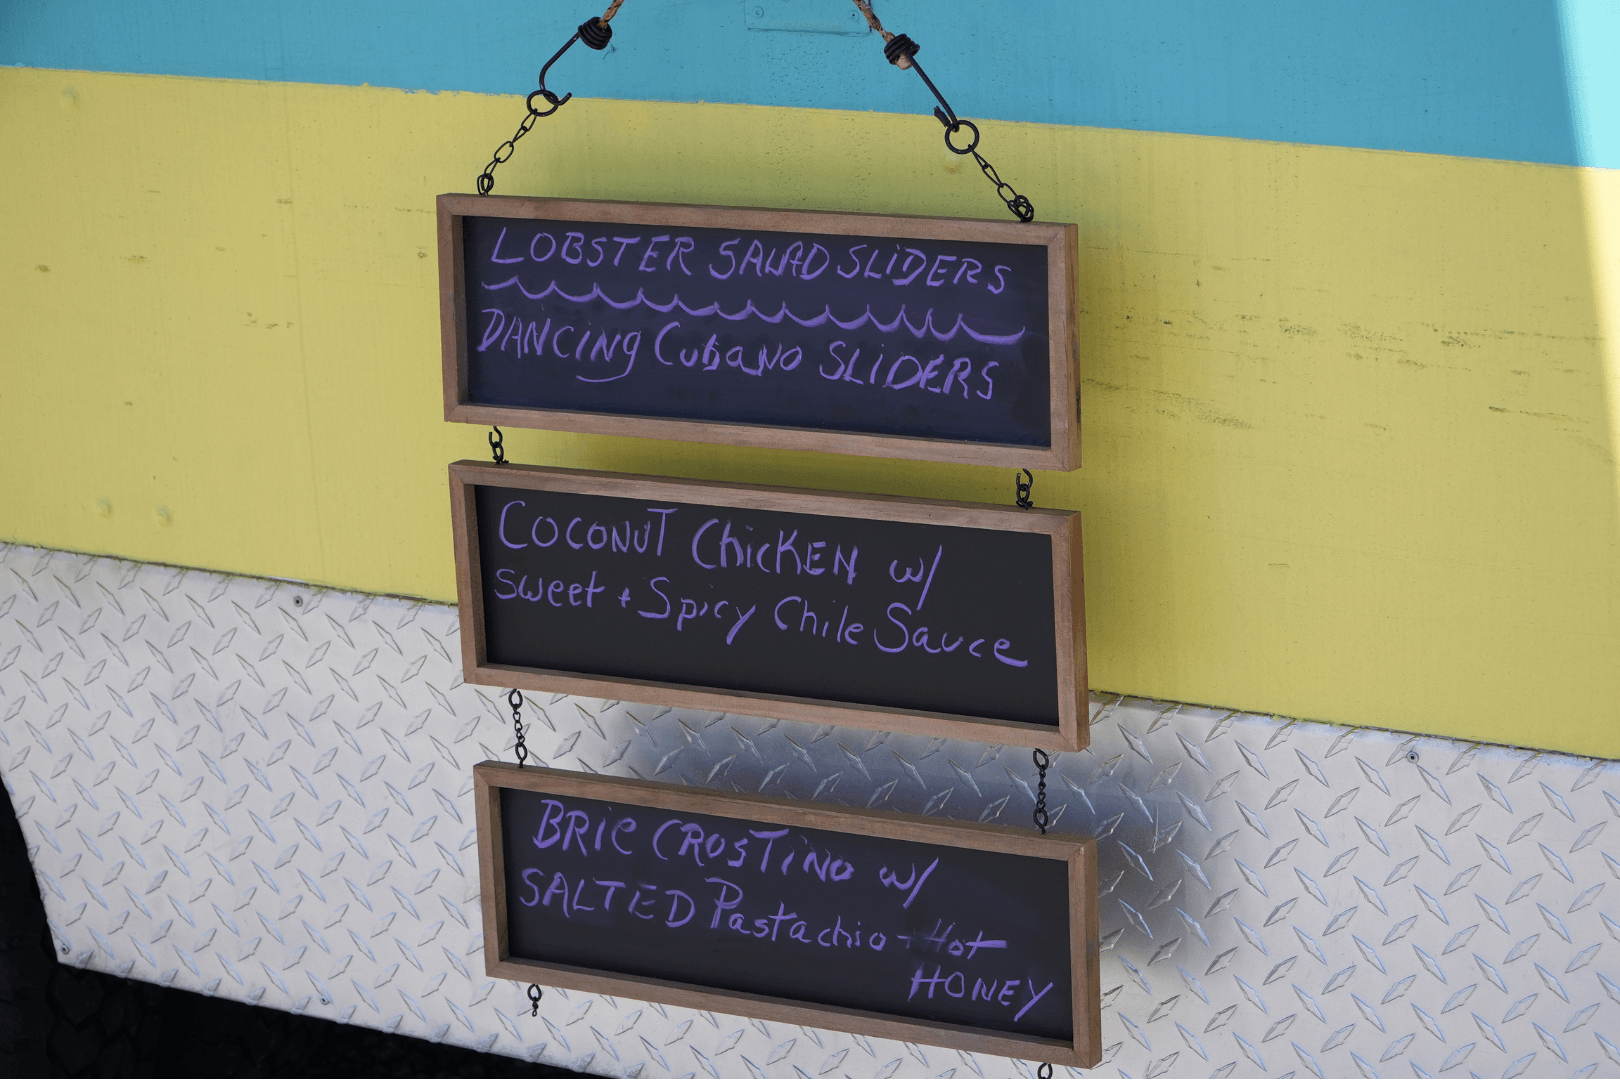 LOBSTER SALAD SLiDERS
DANCiNg CubaNo SLiDERS
COCONUT ChicKEN w/
Sweet + Spicy Chile Sauce
BRIe CROSTiNO w/
SALTED Pastachio + Hot
HONEY